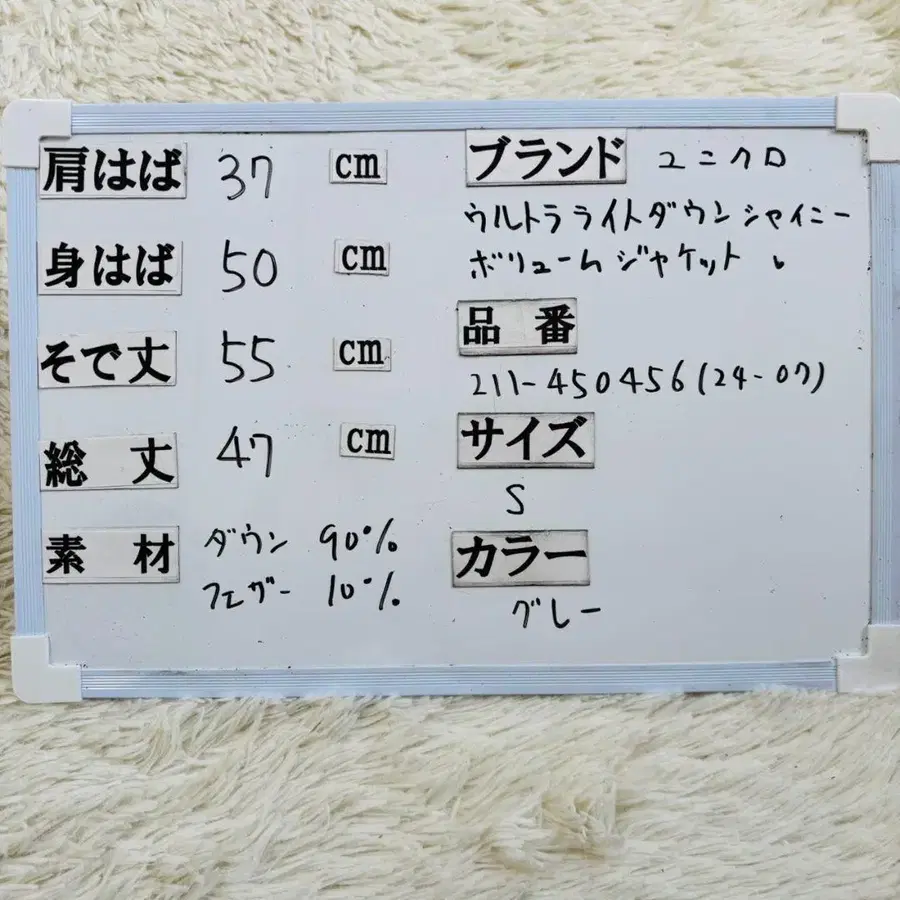 肩はば 37 cm
身はば 50 cm
そで丈 55 cm
総丈 47 cm
素材 ダウン 90%
フェザー 10%
ブランド ユニクロ
ウルトラライトダウンシャイニー
ボリュームジャケット
品番
211-450456(24-07)
サイズ
S
カラー
グレー